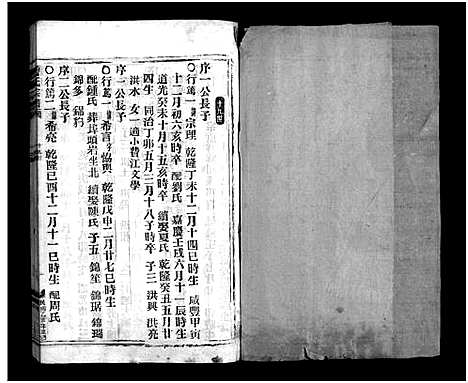 十五世
序一公長子
○行篤一 諱宗理 乾隆丁未十二月十四巳時生 咸豐甲寅
十二月初六亥時卒 配劉氏 嘉慶壬戌六月十一辰時生
道光癸未十月十五亥時卒 續娶夏氏 乾隆癸丑五月廿
四生 同治丁卯五月三月十八子時卒 子三 洪興 洪亮
洪水 女一 適小贊江文學
序一公長子
○行篤一 諱希言 協與 乾隆戊申二月廿七巳時生
配鍾氏 葬埠頭岩坐北 續娶陳氏 子五 錦笙 錦琚 錦瑞
錦多 錦豹
序二公長子
○行篤二 諱希亮 乾隆己酉十二月十一巳時生 配周氏